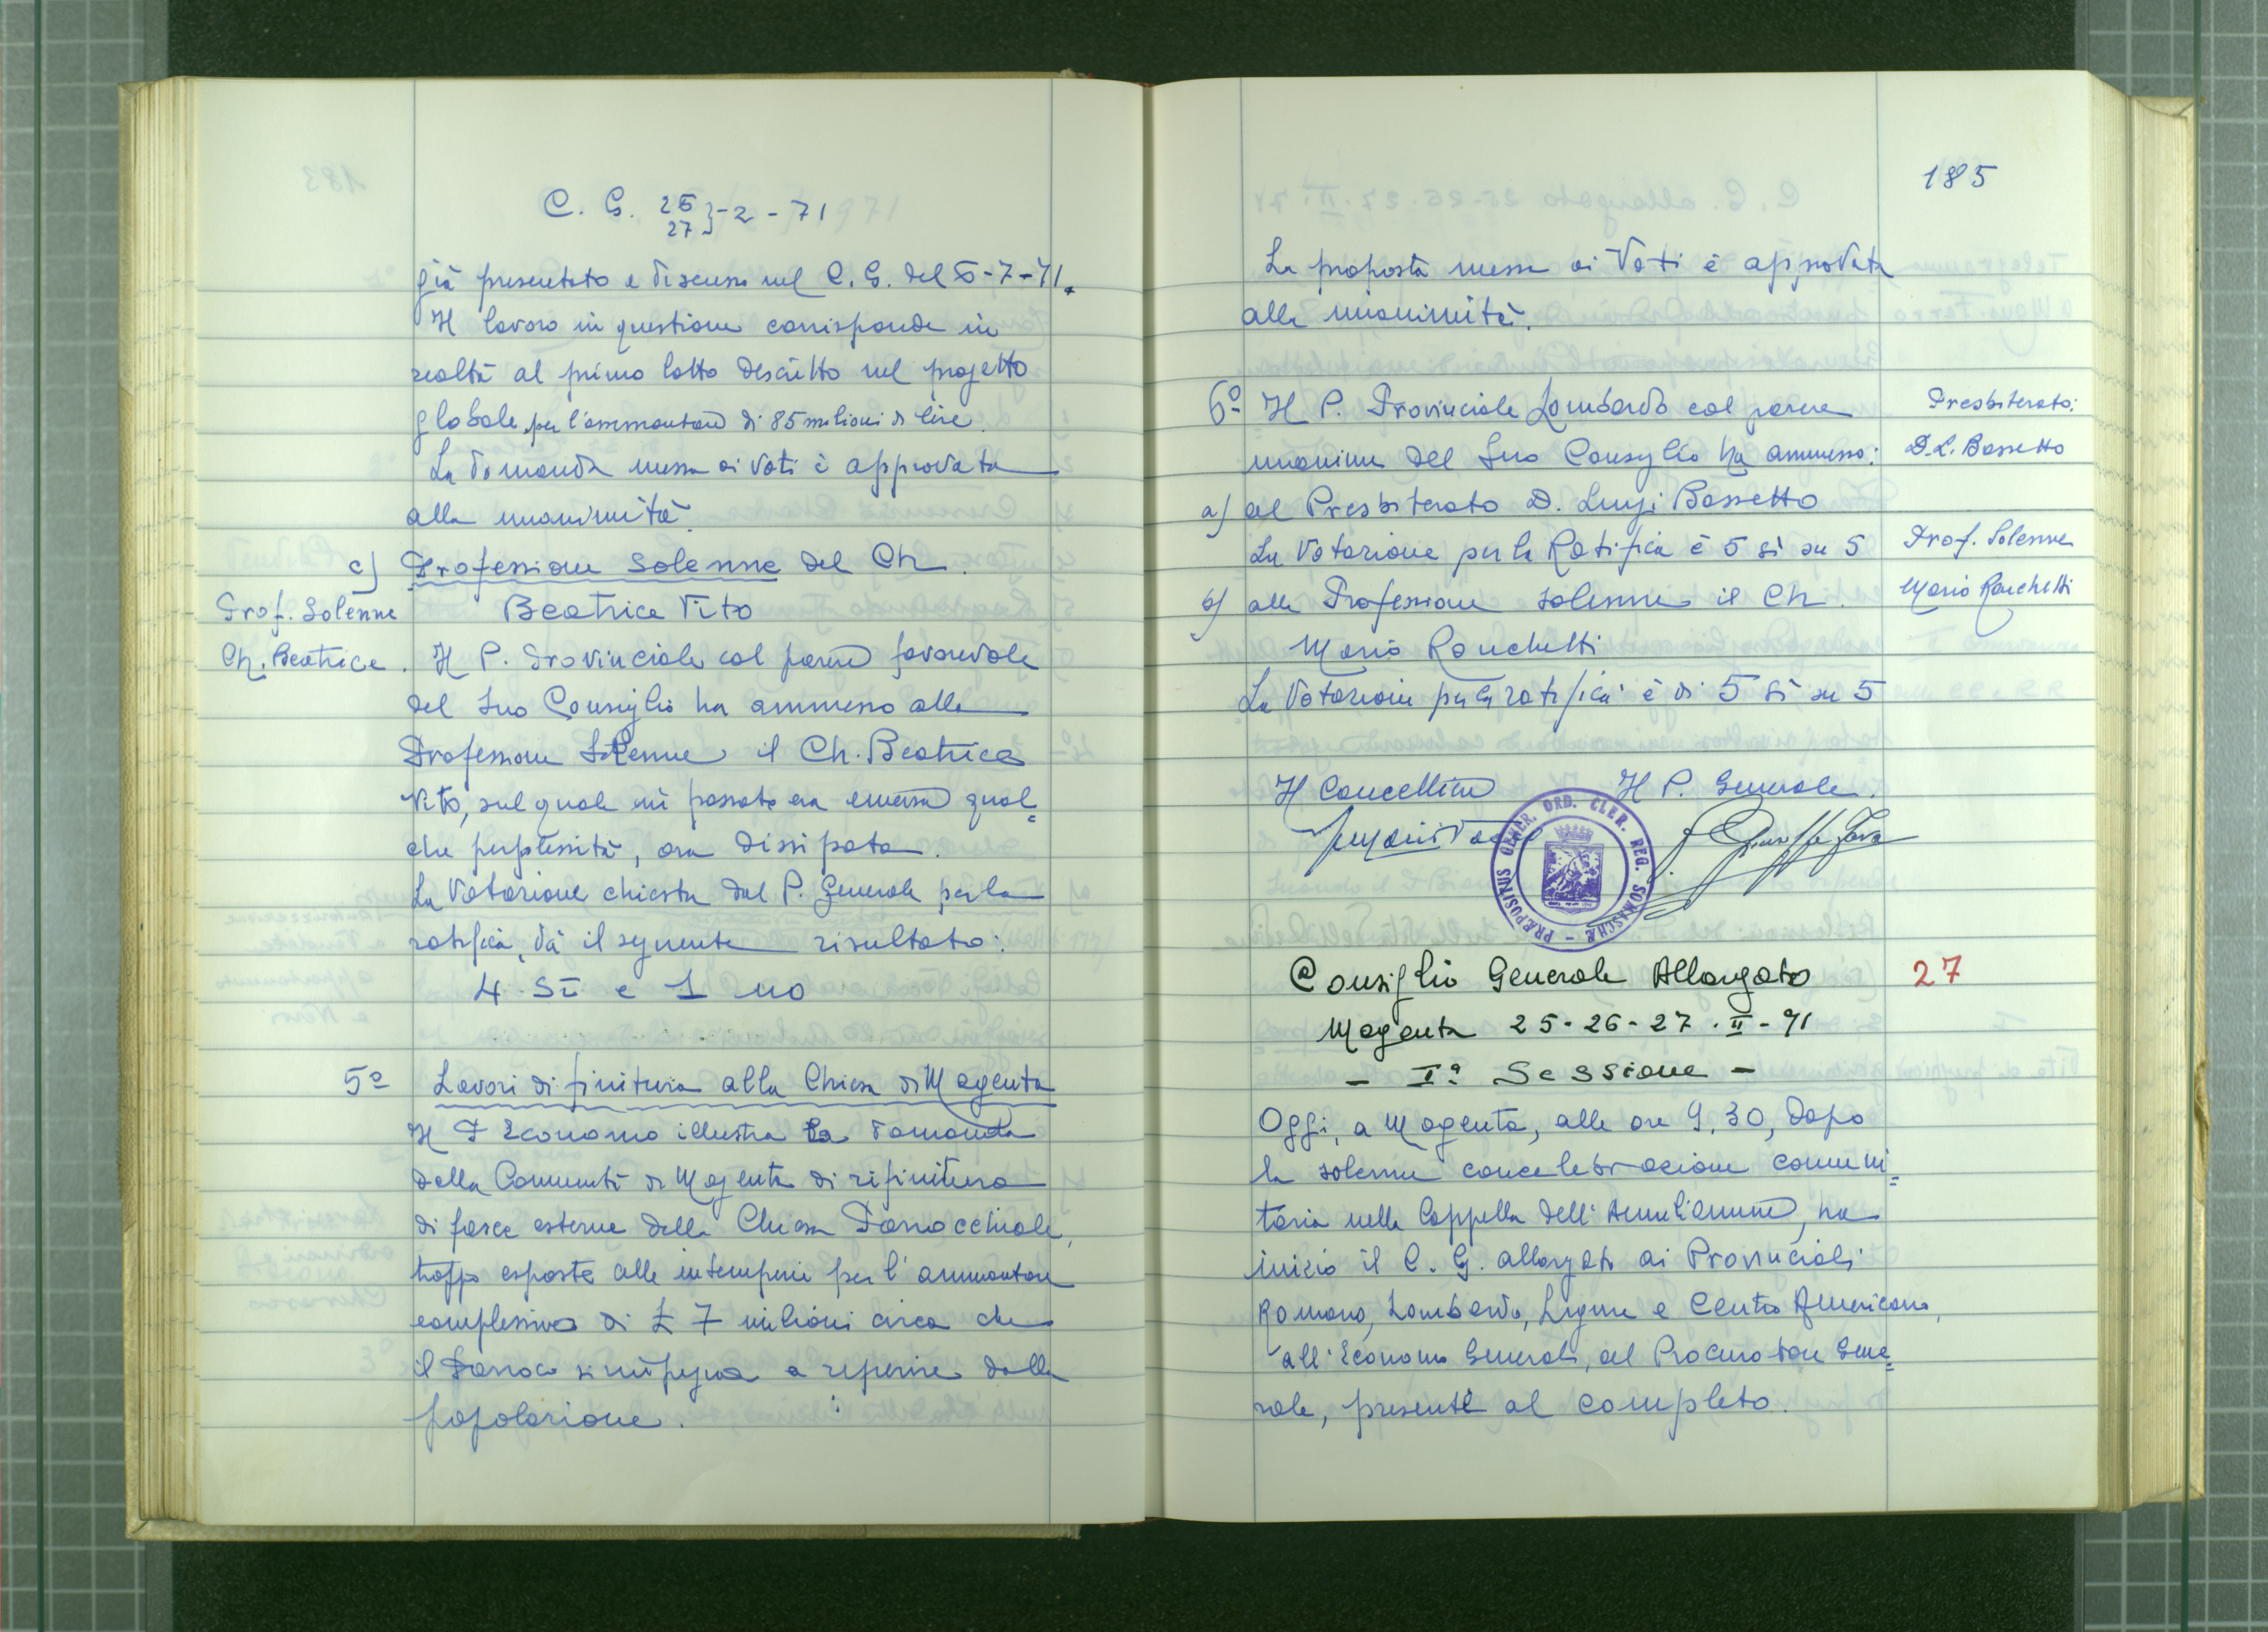 C. G. 26
27 } - 2 - 71
già presentato e discusso nel C. G. del 6-7-71.
Il lavoro in questione corrisponde in
realtà al primo lotto descritto nel progetto
globale, per l'ammontare di 85 milioni di lire.
La domanda messa ai voti è approvata
alla unanimità.
c) Professione Solenne del Ch.
Prof. Solenne
Beatrice Vito
Ch. Beatrice.
Il P. Provinciale col parere favorevole
del Suo Consiglio ha ammesso alla
Professione Solenne il Ch. Beatrice
Vito, sul quale in passato era emersa qual=
che perplessità, ora dissipata.
La Votazione chiesta dal P. Generale per la
ratifica, dà il seguente risultato:
4 Sì e 1 no
5º Lavori di finitura alla Chiesa di Magenta
Il P Economo illustra la domanda
della Comunità di Magenta di rifinitura
di fasce esterne della Chiesa Parrocchiale,
troppo esposte alle intemperie per l'ammontare
complessivo di £ 7 milioni circa che
il Parroco si impegna a reperire dalla
popolazione.
185
La proposta messa ai Voti è approvata
alla unanimità.
6º Il P. Provinciale Lombardo col parere
unanime del Suo Consiglio ha ammesso:
Presbiterato:
D. L. Bassetto
a) al Presbiterato D. Luigi Bassetto
La Votazione per la Ratifica è 5 sì su 5
Prof. Solenne
Mario Ronchetti
b) alla Professione solenne il Ch.
Mario Ronchetti
La Votazione per la ratifica è di 5 sì su 5
Il Cancelliere Il P. Generale.
PRÆPOSITUS GENER. ORD. CLER. REG. SOMASCHÆ
Consiglio Generale Allargato
27
Magenta 25-26-27-II-71
- Iª Sessione -
Oggi, a Magenta, alle ore 9,30, dopo
la solenne concelebrazione comuni=
taria nella Cappella dell'Aemilianum, ha
inizio il C. G. allargato ai Provinciali
Romano, Lombardo, Ligure e Centro Americano,
all'Economo Generale, al Procuratore Gene=
rale, presenti al completo.